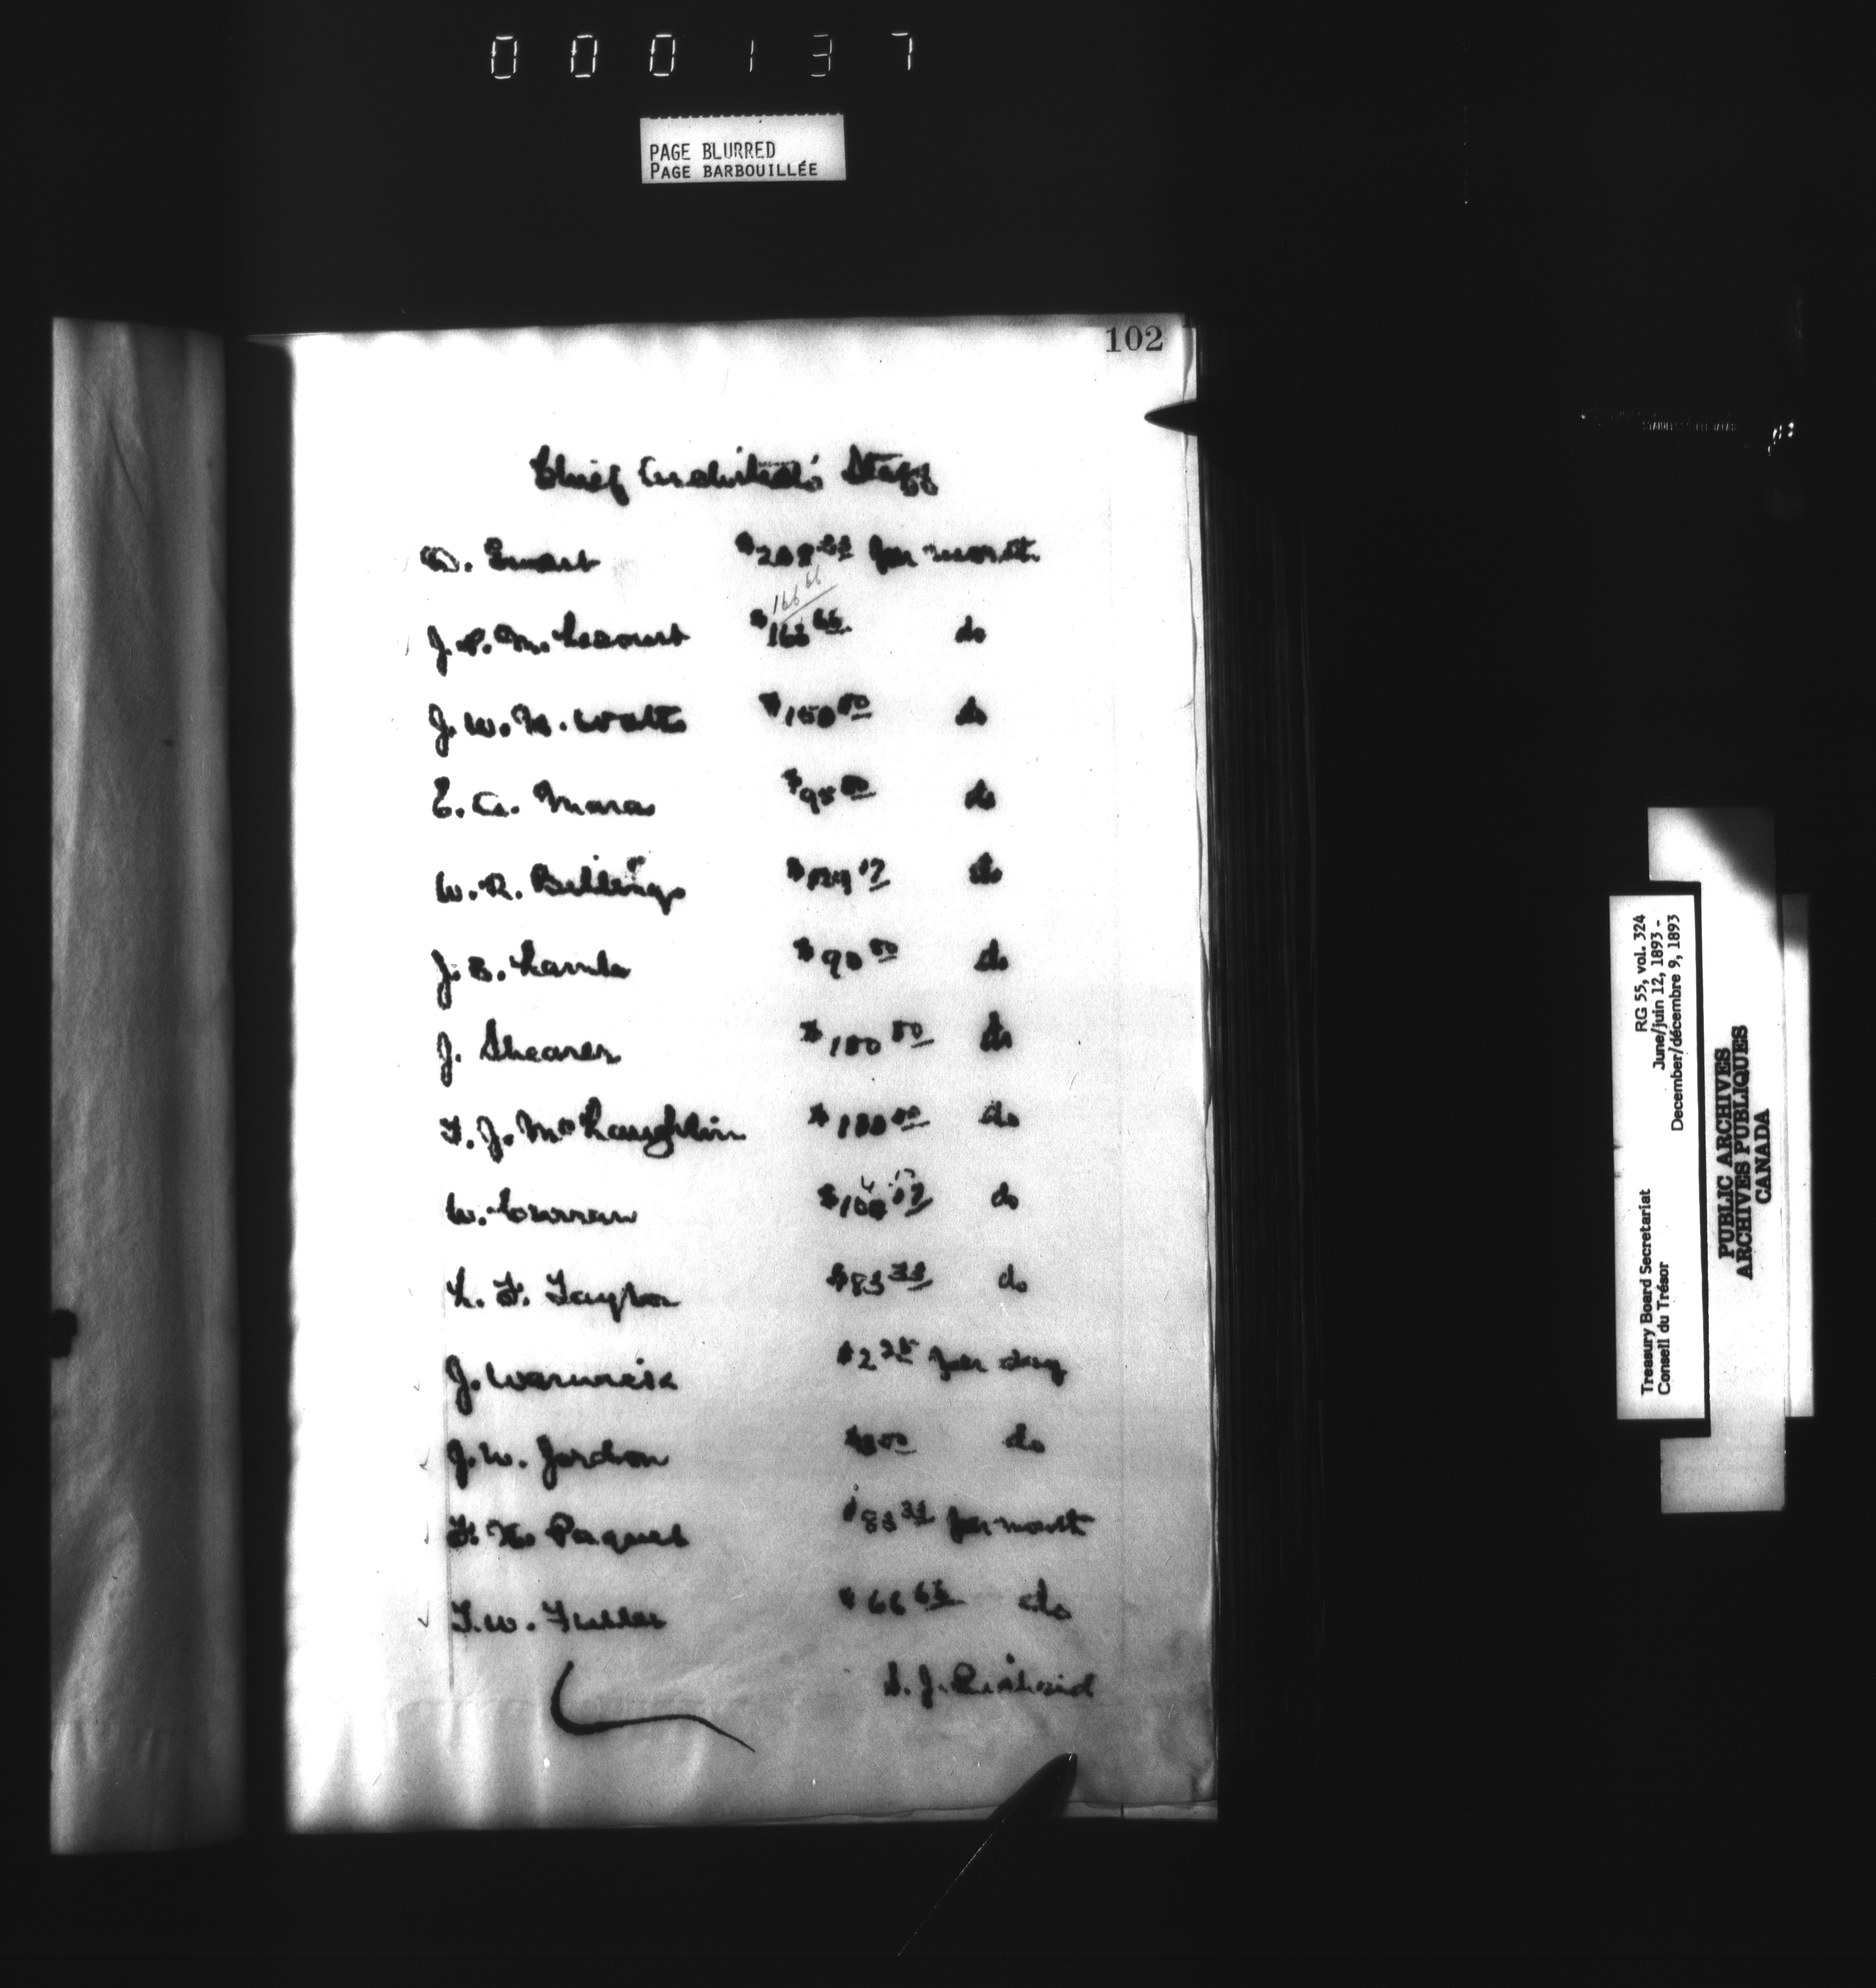 000137
PAGE BLURRED
PAGE BARBOUILLÉE
102
Chief Architect's Staff
D. Ewart $208 33 per month
166 66
J. P. M. Lecourt $166 66 do
J. W. H. Watts $150 00 do
E. A. Mara $95 00 do
W. R. Billings $129 17 do
J. B. Lamb $90 00 do
J. Shearer $100 00 do
T. J. McLaughlin $100 00 do
W. Curran 17 do
L. F. Taylor $83 33 do
J. $2 25 per day
J. W. Jordon do
T. X. Paquet $83 33 per month
T. W. Fuller $66 66 do
S. J.
RG 55, vol. 324
June/juin 12, 1893 -
December/décembre 9, 1893
Treasury Board Secretariat
Conseil du Trésor
PUBLIC ARCHIVES
ARCHIVES PUBLIQUES
CANADA